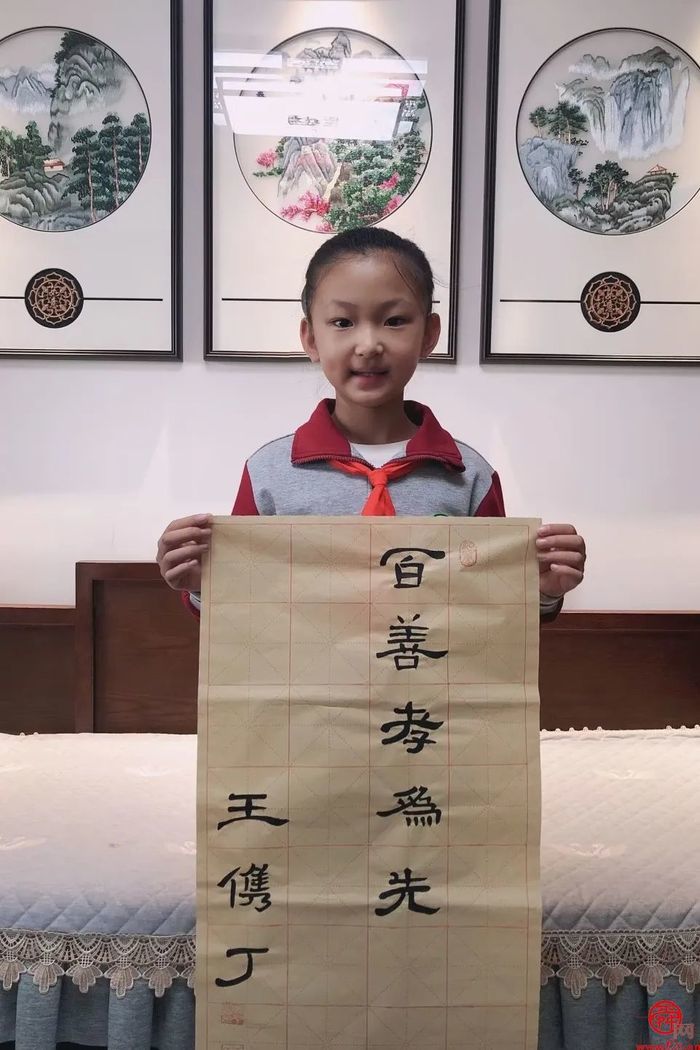 百善孝為先
王儁丁
舜网